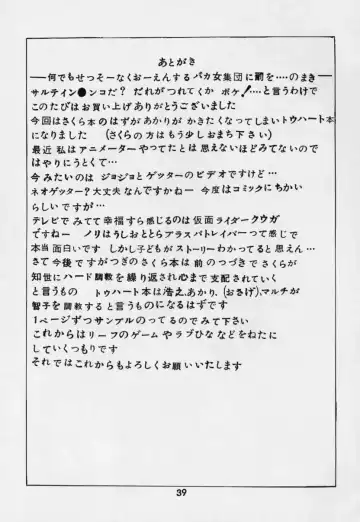 あとがき
──何でもせっそーなくおーえんするバカ女集団に罰を‥‥のまき─
サルテイン●ンコだ? だれがつれてくか ボケ!‥‥と言うわけで
このたびはお買い上げありがとうございました
今回はさくら本のはずがあかりがかきたくなってしまいトウハート本
になりました (さくらの方はもう少しおまち下さい)
最近 私はアニメーターやってたとは思えないほどみてないので
はやりにうとくて…
今みたいのは ジョジョとゲッターのビデオですけど…
ネオゲッター? 大丈夫なんですかねー 今度はコミックにちかい
らしいですが…
テレビでみてて幸福すら感じるのは仮面ライダークウガ
ですねー ノリはうしおととらプラスパトレイバーって感じで
本当面白いです しかし子どもがストーリーわかってると思えん…
さて今後ですがつぎのさくら本は前のつづきでさくらが
知世にハード調教を繰り返され心まで支配されていく
と言うもの トゥハート本は浩之、あかり、(おさげ)、マルチが
智子を調教すると言うものになるはずです
1ページずつサンプルのってるのでみて下さい
これからはリーフのゲームやラブひななどをねたに
していくつもりです
それではこれからもよろしくお願いいたします
39